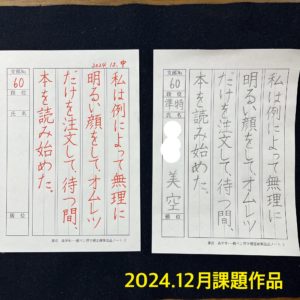 2024.12. 中
支部No.
60
段位
氏名
私は例によって、無理に
明るい顔をして、オムレツ
だけを注文して、待つ間、
本を読み始めた。
順位
支部No.
60
段位
準特
氏名
美空
私は例によって、無理に
明るい顔をして、オムレツ
だけを注文して、待つ間、
本を読み始めた。
順位
2024.12月課題作品